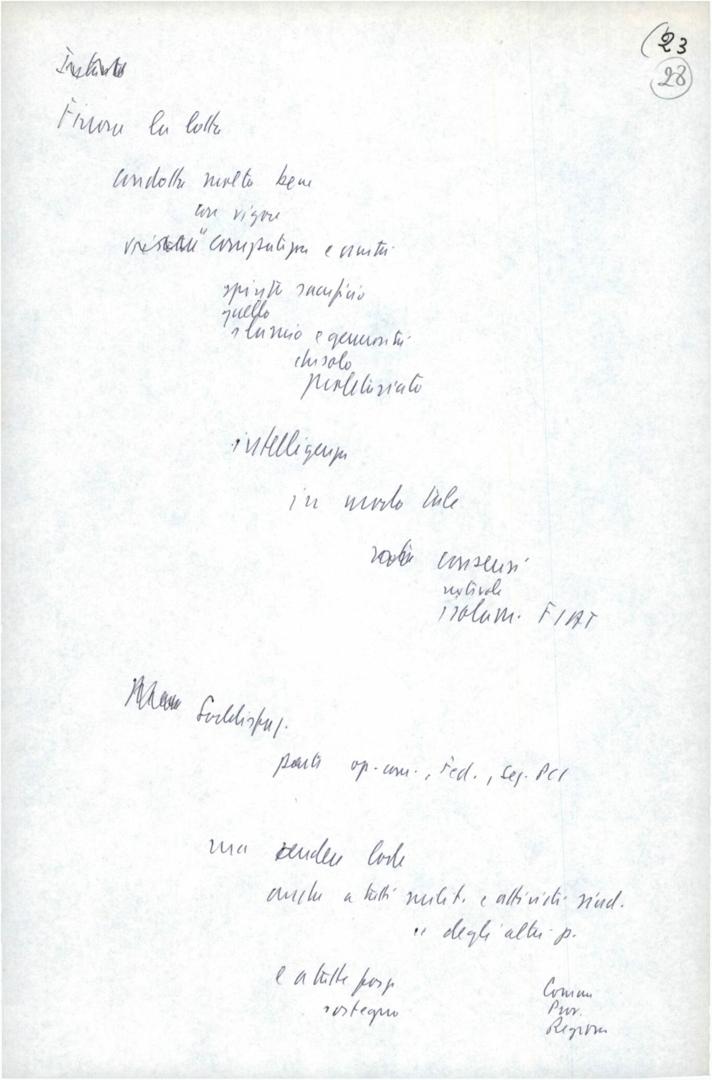 23
28
Finora la lotta
condotta molto bene
con vigore
compattezza e unità
spirito sacrificio
quello
slancio e generosità
che solo
proletariato
intelligenza
in modo tale
consensi
isolam. FIAT
Soddisfaz.
op. com., Fed., Seg. PCI
ma rendere lode
anche a tutti milit. e attivisti sind.
" degli altri p.
e a tutte forze
sostegno
Comuni
Prov.
Regione